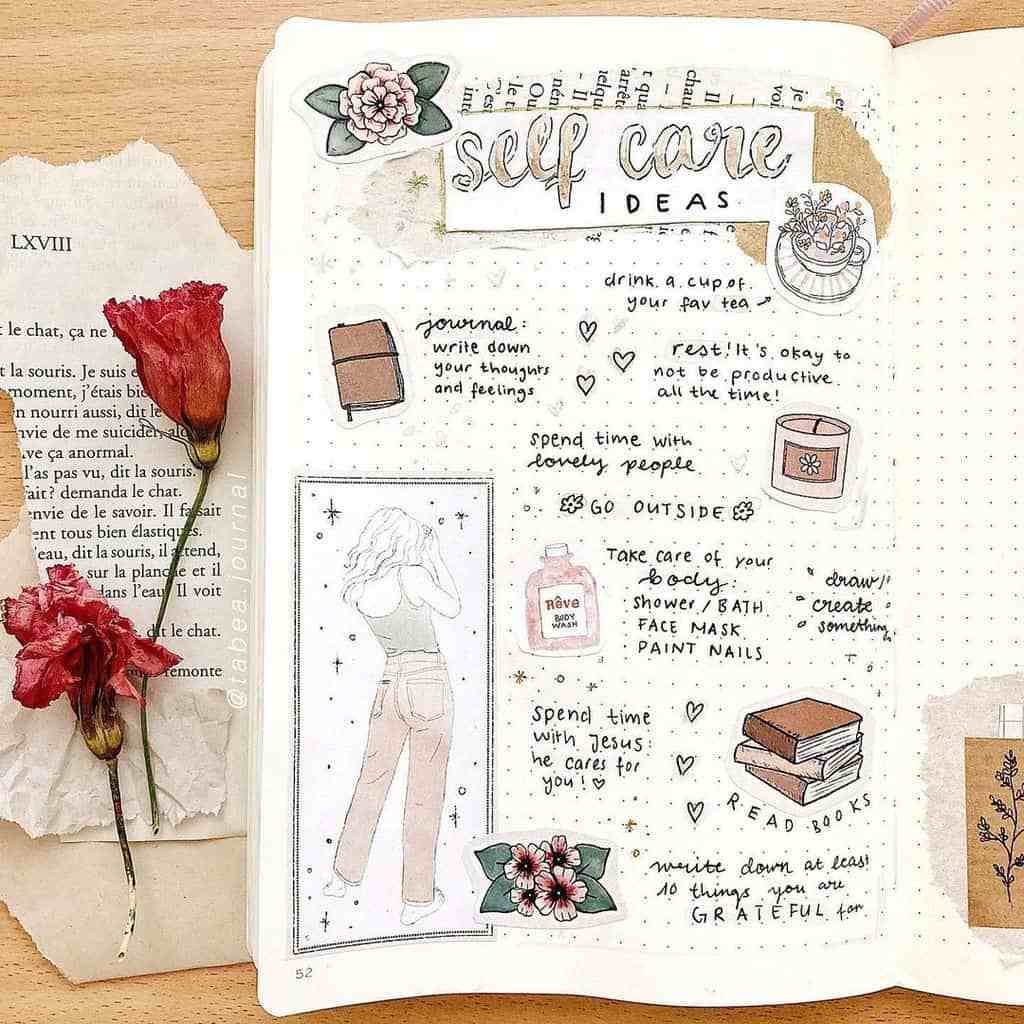 LXVIII
t le chat, ça ne
t la souris. Je suis
moment, j'étais bie
n nourri aussi, dit le
nvie de me suicider, alo
ve ça anormal.
l'as pas vu, dit la souris.
fait ? demanda le chat.
envie de le savoir. Il fait
ent tous bien élastiques.
l'eau, dit la souris, il attend,
sur la planche et il
dans l'eau. Il voit
dit le chat.
remonte
@tabea.journal
self care
IDEAS
drink a cup of
your fav tea
journal:
write down
your thoughts
and feelings
rest! It's okay to
not be productive
all the time!
spend time with
lovely people
GO OUTSIDE
Take care of your
body:
shower / BATH
FACE MASK
PAINT NAILS
Rêve
BODY
WASH
draw /
create
something
Spend time
with Jesus:
he cares for
you!
READ BOOKS
write down at least
10 things you are
GRATEFUL for
52